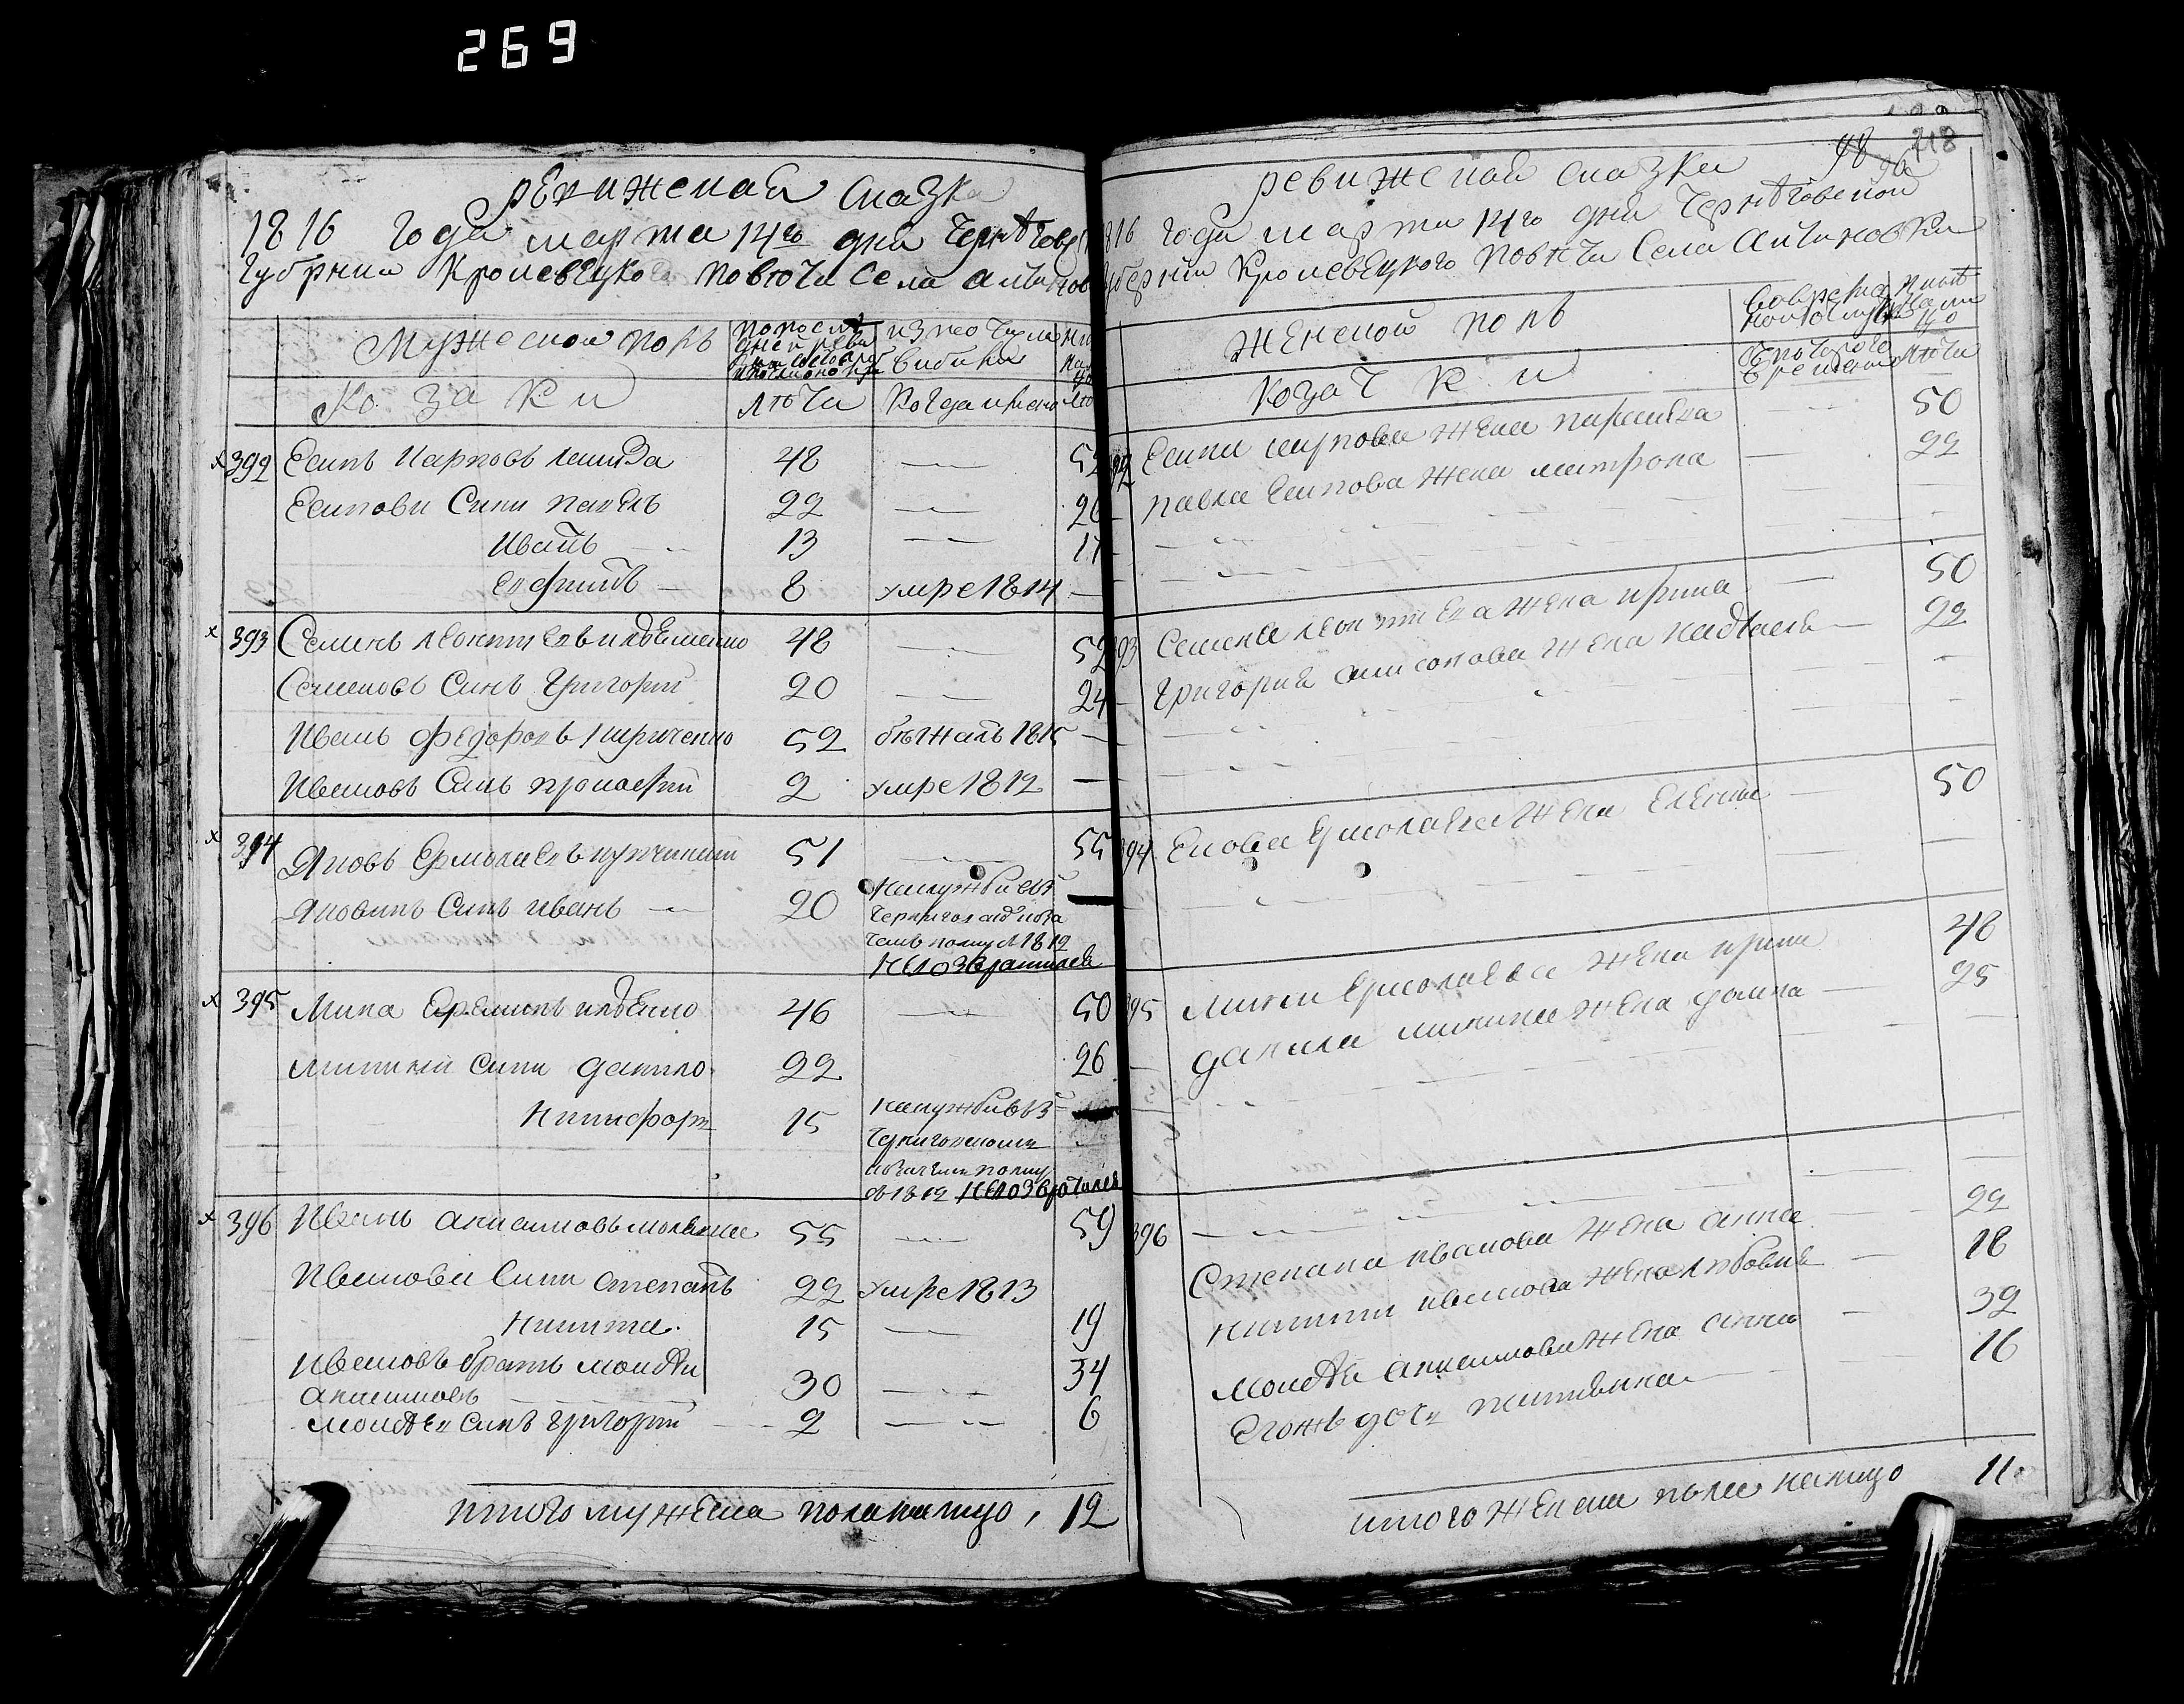 269
ревижская сказка
1816 года марта 14го дня Чернѣговс
Губрнии Кролевецкого повѣта Села Алтинов
Мужеской полъ
по послѣ дней реви
из того числа вибили
Козаки
лѣта
Когда имено
лѣ
x 392 Есипъ Карповъ 48 52
Есипови Сини павелъ 22 26
Иванъ 13 17
Ефимъ 8 умре 1814
x 393 Семенъ леонтиевъ 48 52
Семеновъ Синъ Григорий 20 24
Иванъ Федоровъ Кириченко 52 бѣжалъ 1815
Ивановъ Синъ прокофий 2 умре 1812
x 394 Яковъ Ермолаевъ 51 55
Яковинъ Синъ иванъ 20 на службѣ въ
Чернигов козачемъ полку в 1812
не возвратился
x 395 Мина Ереминъ 46 50
Минини сини данило 22 26
Никифоръ 15 на службѣ въ
Черниговскомъ
козачемъ полку
в 1812 не возвратился
x 396 Иванъ анисимовъ 55 59
Иванови Сини степанъ 22 умре 1813
Никита 15 19
Ивановъ братъ моисѣй
анисимовъ 30 34
моисѣевъ синъ григорий 2 6
итого мужеска пола налицо 12
98 718
ревижской сказки
1816 года марта 14го дня Чернѣговской
Губернии Кролевецкого повѣта Села Алтиновки
Женской полъ
Во времен
ной отлуч
Нинѣ
нали
цо
Козачки
Съ которого
времени
лѣта
392 Есипа карпова жена параскева 50
павла Есипова жена митрона 22
393 Семена леонтиева жена ирина 50
Григория жена 22
394 Якова Ермолаева жена Елена 50
395 Мини Ермолаева жена ирина 48
данила минина жена домна 25
396
Степана иванова жена анна 22
никити иванова жена любовь 18
моисѣя анисимова жена анна 32
Егожъ дочь 16
итого женска пола налицо 11